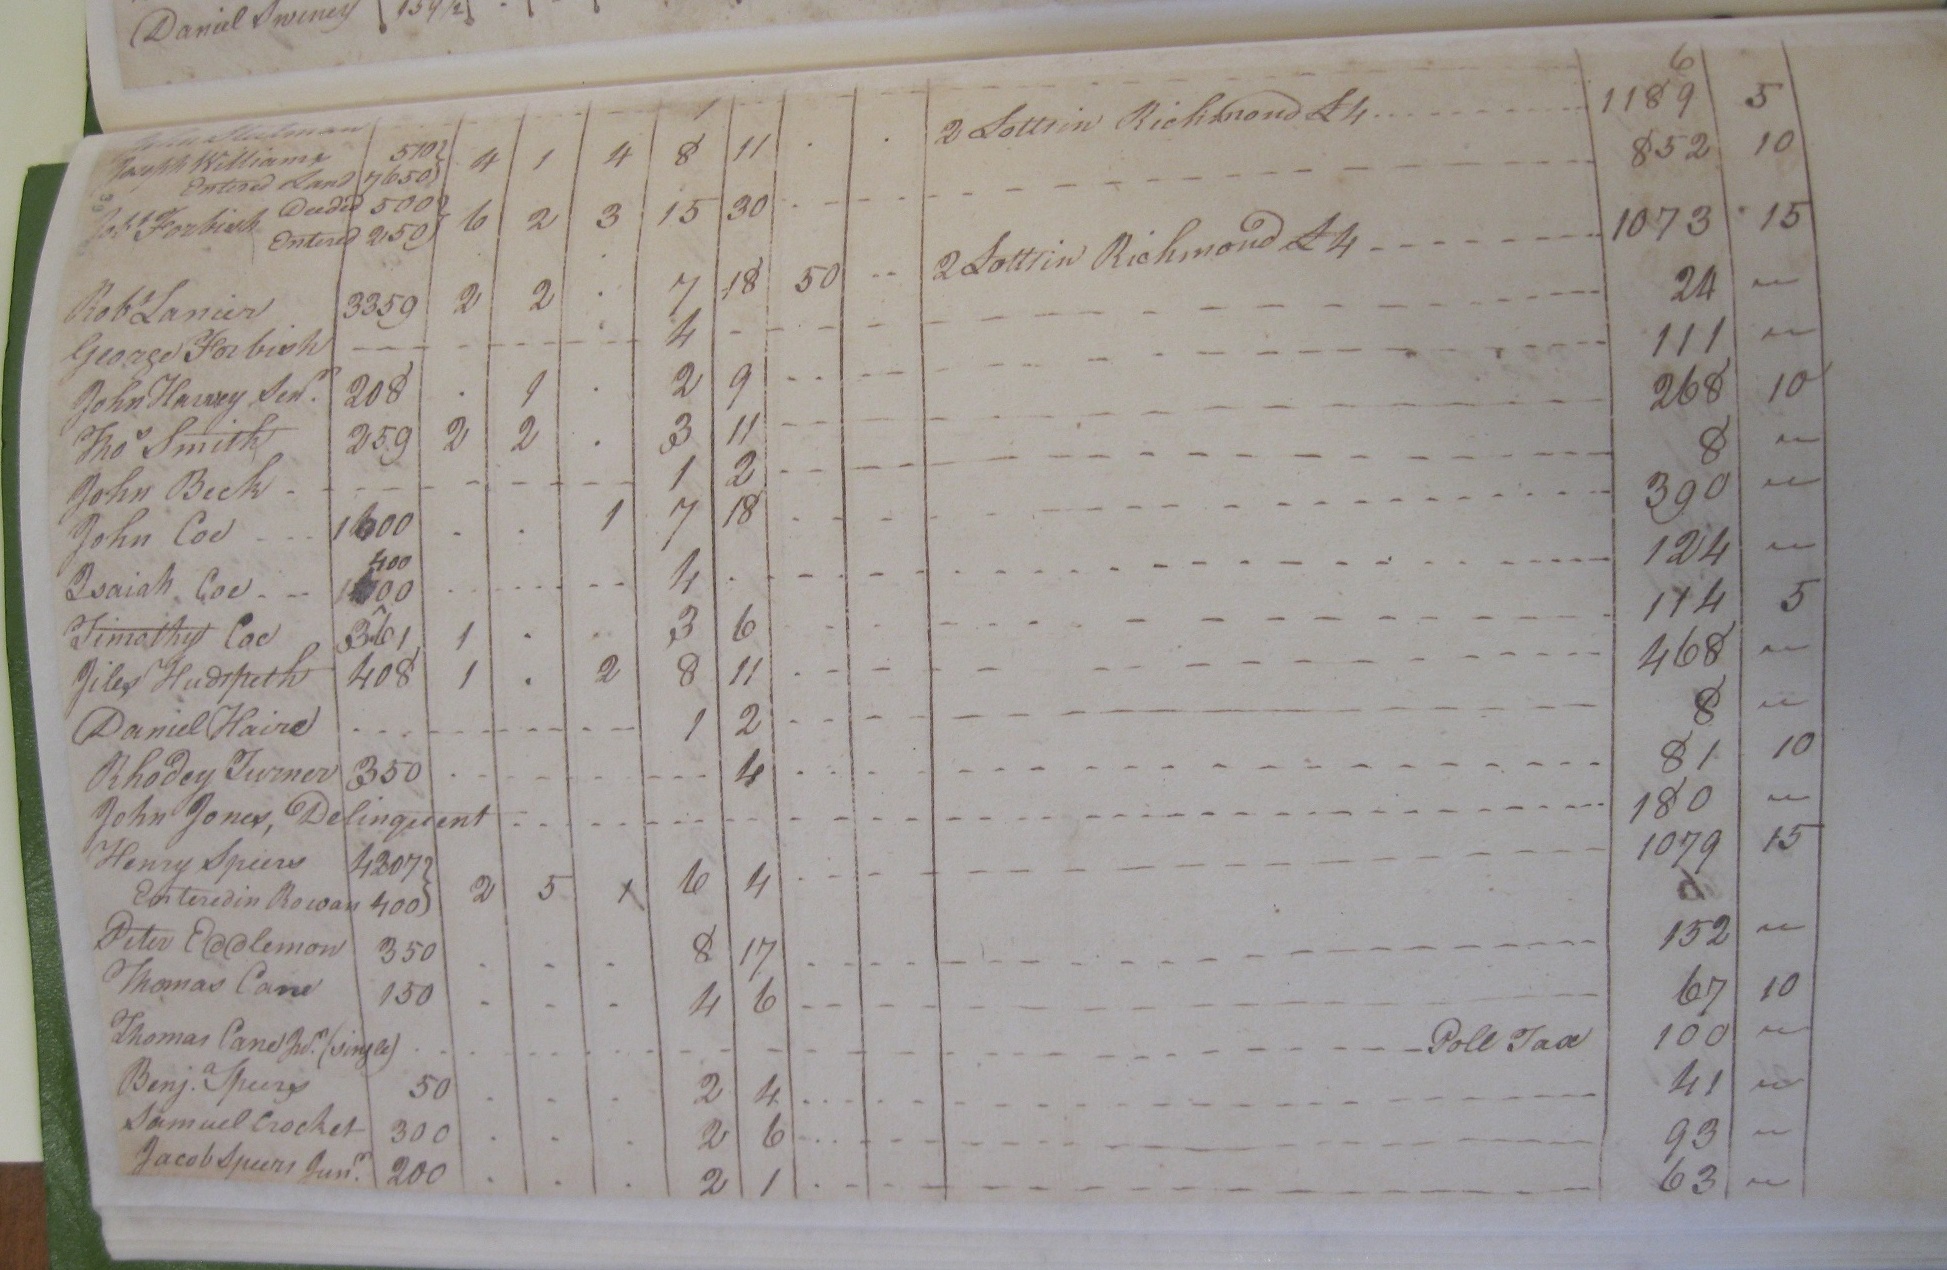 Daniel Swiney 154½
1 6
Joseph Williams 510 4 1 4 8 11 2 Lotts in Richmond £4 1189 5
Entered Land 7650
Robt. Forbish Deeded 500 6 2 3 15 30 852 10
Entered 250
Robt. Lanier 3359 2 2 . 7 18 50 2 Lotts in Richmond £4 1073 15
George Forbish 4 24 "
John Harvey Senr. 208 . 1 . 2 9 111 "
Thos. Smith 259 2 2 . 3 11 268 10
John Beck 1 2 8 "
John Coe 1600 . . 1 7 18 390 "
400
Isaiah Coe 4 124 "
Timothy Coe 361 1 . . 3 6 114 5
Jiles Hudspeth 408 1 . 2 8 11 468 "
Daniel Haire 1 2 8 "
Rhodey Turner 350 4 81 10
John Jones, Delinquent 180 "
Henry Speers 4207 2 5 x 6 4 1079 15
Entered in Rowan 400
Peter Eddlemon 350 . . . 8 17 152 "
Thomas Cane 150 . . . 4 6 67 10
Thomas Cane Jur. (single) Poll Tax 100 "
Benja. Speers 50 . . . 2 4 41 "
Samuel Crocket 300 . . . 2 6 93 "
Jacob Speers Junr. 200 . . . 2 1 63 "